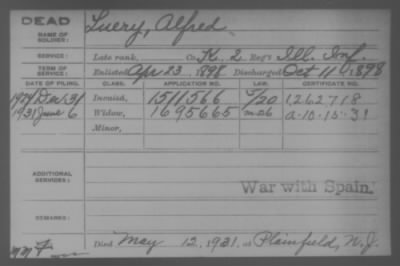 DEAD
NAME OF SOLDIER: Luery, Alfred.
SERVICE: Late rank, Co. K. 2 Reg't Ill. Inf.
TERM OF SERVICE: Enlisted Apr 23, 1898 Discharged Oct 11, 1898
DATE OF FILING. CLASS. APPLICATION NO. LAW. CERTIFICATE NO.
Dec 31 Invalid, 1511566 1262718
1931 June 6 Widow, 1695665 a-10-15-31
Minor,
ADDITIONAL SERVICES:
War with Spain.
REMARKS:
Died May 12, 1931, at Plainfield, N.J.